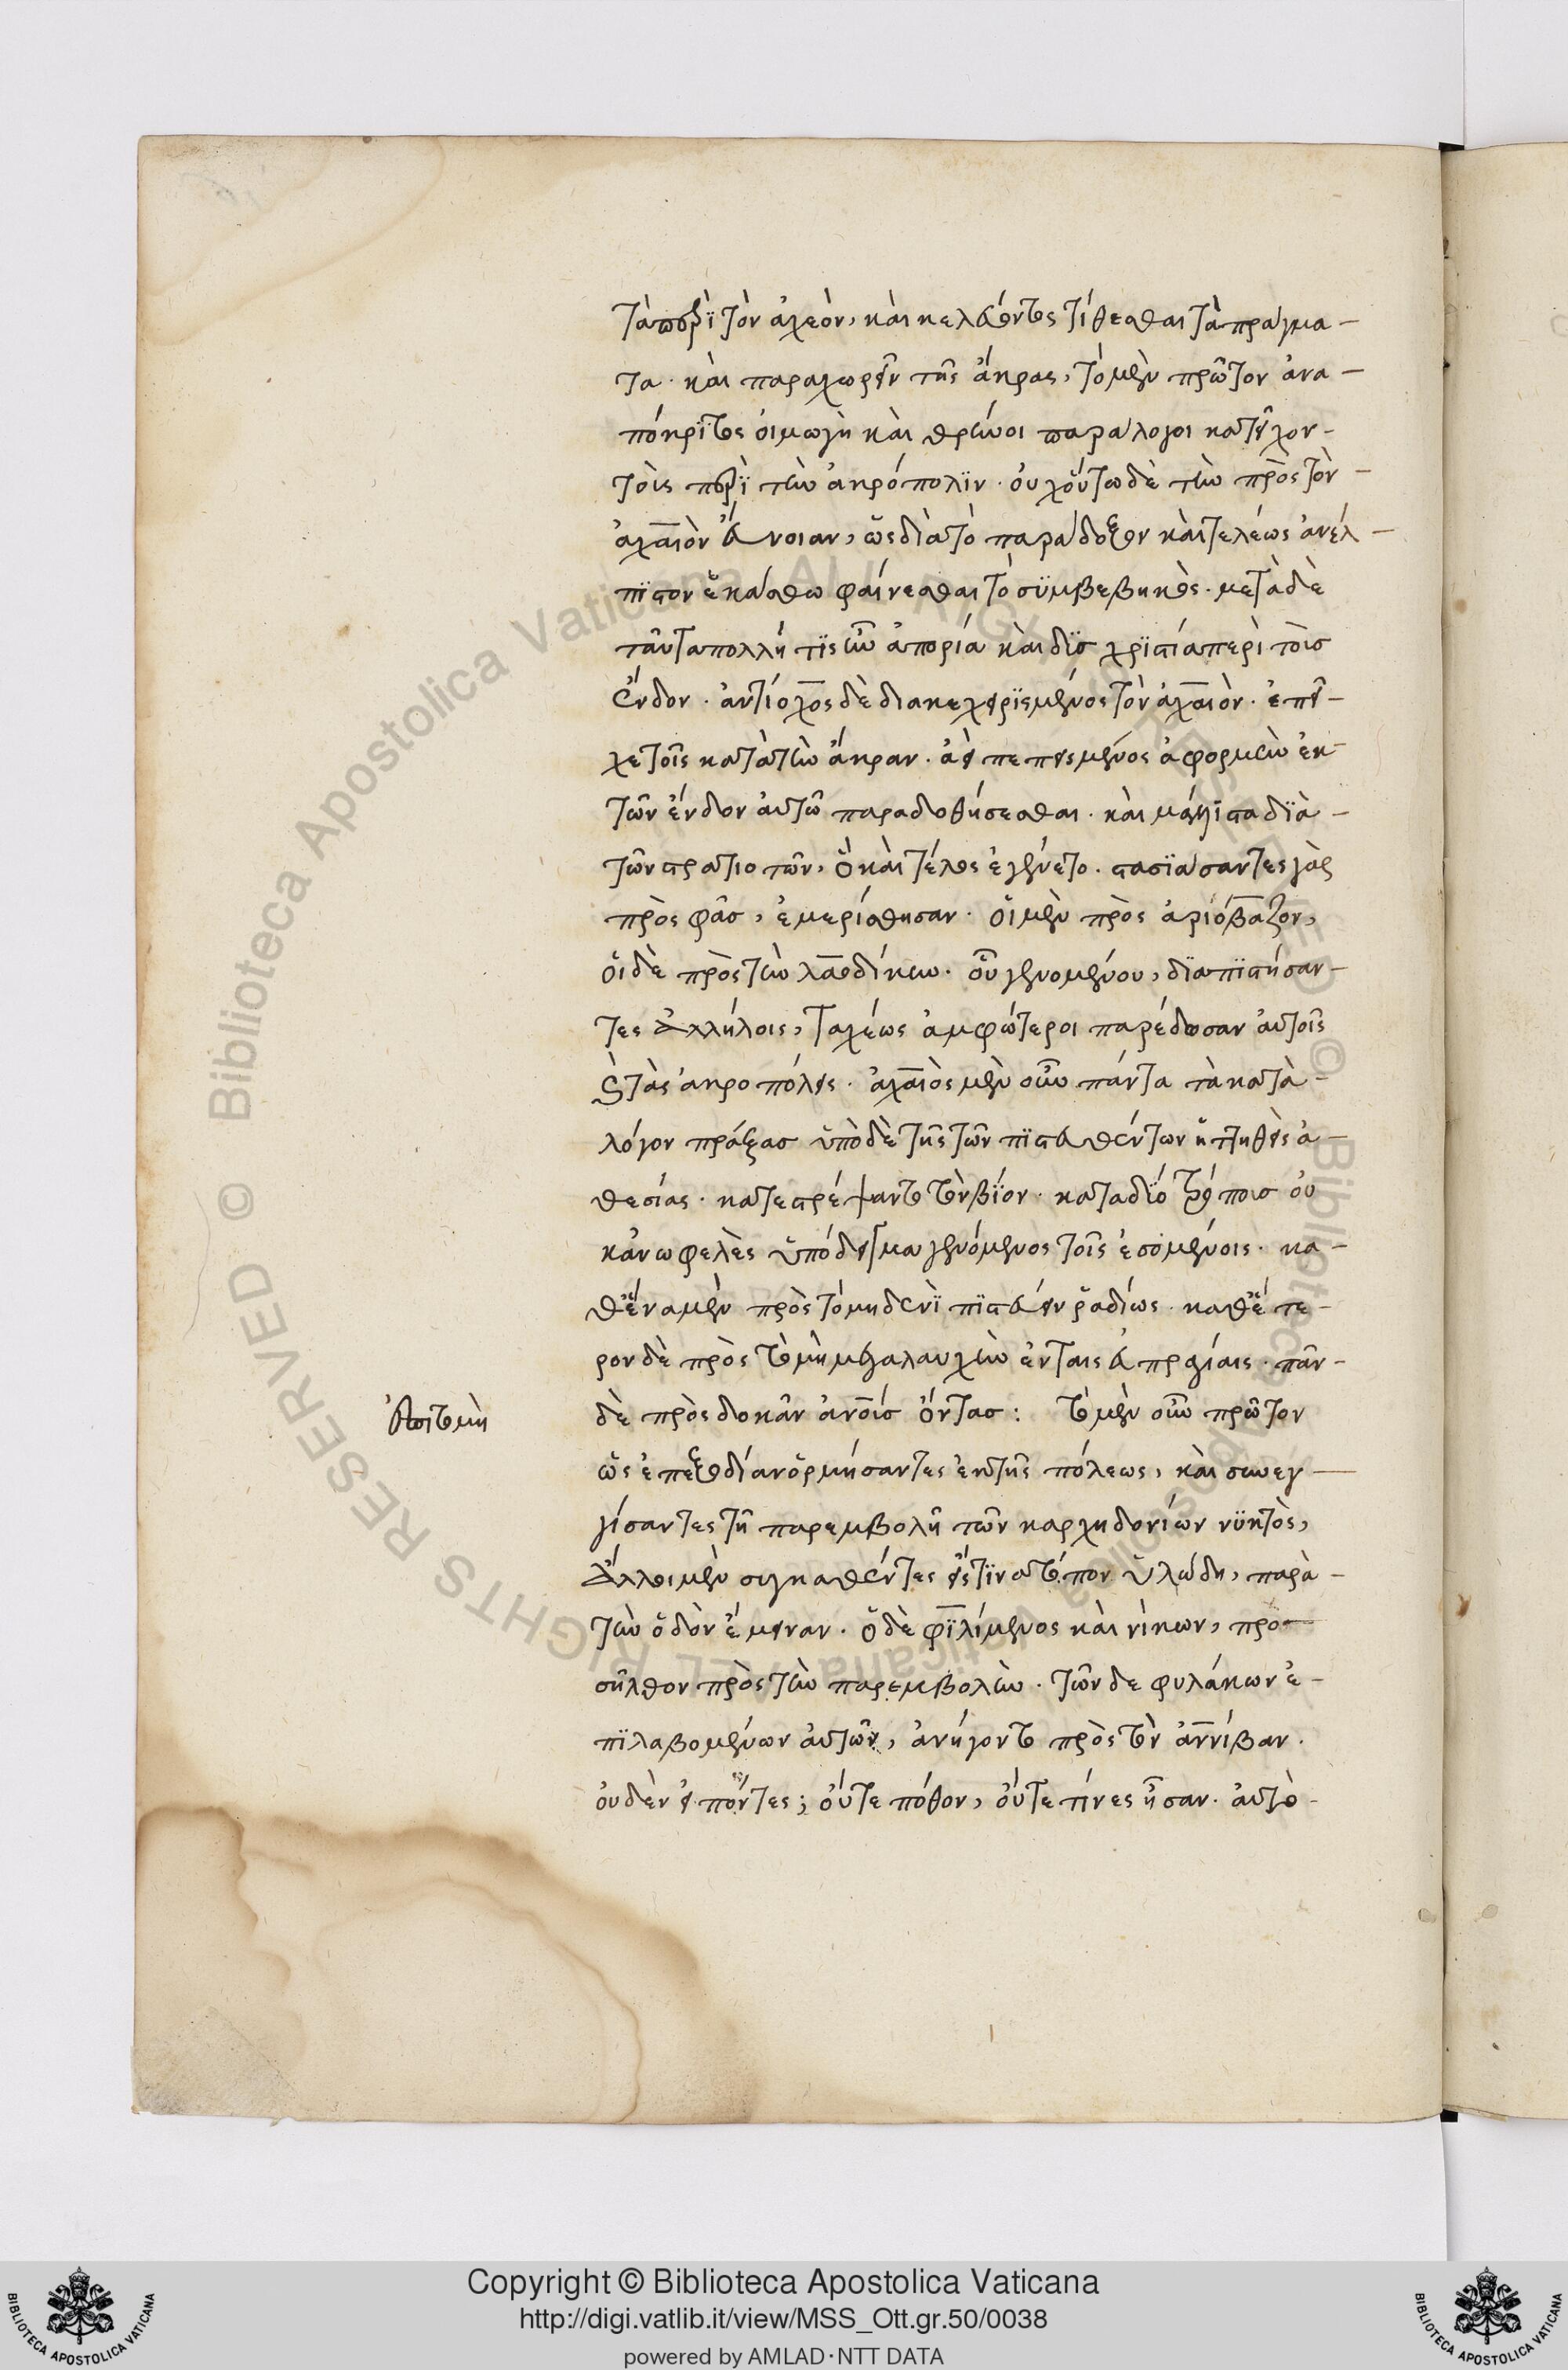 τὰ περὶ τὸν ἀχεὸν, καὶ κελεύοντες τίθεσθαι τὰ πράγμα-
τα· καὶ παραχωρεῖν τῆς ἄκρας, τὸ μὲν πρῶτον ἀνα-
πόκριτος οἰμωγὴ καὶ θρῆνοι παράλογοι κατεῖχον-
τοὶς περὶ τὴν ἀκρόπολϊν· οὐχ οὕτω δὲ τὴν πρὸς τὸν-
ἀχαιὸν εὔνοιαν, ὡς διὰ τὸ παράδοξον καὶ τελέως ἀνέλ-
πϊστον ἑκάστω φαίνεσθαι τὸ σϋμβεβηκὸς· μετὰ δὲ
ταῦτα πολλή τϊς ἦν ἀπορία καὶ δϊσχρϊστία περὶ τοῖσ
ἔνδον· ἀντίοχος δὲ διακεχειρϊσμένος τὸν ἀχαιὸν· ἐπεῖ-
χε τοῖς κατὰ τὴν ἄκραν· ἀεὶ πεπεισμένος ἀφορμὴν ἐκ-
τῶν ἔνδον αὐτῶ παραδοθήσεσθαι· καὶ μάλιστα δϊὰ-
τῶν στρατιοτῶν, ὃ καὶ τέλος ἐγένετο· στασϊάσαντες γὰρ
πρὸς φᾶσ, ἐμερίσθησαν· οἱ μὲν πρὸς ἀριόβαζον,
οἱ δὲ πρὸς τὴν λαοδίκην· οὗ γενομένου, δϊαπϊστήσαν-
τες ἀλλήλοις, ταχέως ἀμφώτεροι παρέδοσαν αὐτοῖς
καὶ τὰς ἀκροπόλεις· ἀχαιὸς μὲν οὖν πάντα τὰ κατὰ-
λόγον πράξας ὑπὸ δὲ τῆς τῶν πϊστευθέντων ἡττηθεὶς ἀ-
θεσίας· κατεστρέψαντο τὸν βϊόν· κατὰ δϊό τρόποισ οὐ
κἀνωφελὲς ὑπόδειγμα γενόμενος τοῖς ἐσομένοις· κα-
θἕνα μὲν πρὸς τὸ μηδενὶ πϊστεύειν ῥαδίως· καθἕτε-
ρον δὲ πρὸς τὸ μὴ μεγαλαυχὴν ἐν ταις εὐπραγίαις· πᾶν-
δὲ πρὸς δοκᾶν ἀνοῖσ ὄντασ: τὸ μὲν οὖν πρῶτον
ὡς ἐπεξοδίαν ὁρμήσαντες ἐκ τῆς πόλεως, καὶ συνεγ-
γίσαντες τῆ παρεμβολῆ τῶν καρχηδονίων νϋκτὸς,
ἄλλοι μὲν συγκαθέντες εἴς τϊνα τόπον ὑλώδη, παρὰ-
τὴν ὁδὸν ἔμειναν· ὁ δὲ φϊλίμενος καὶ νίκων, προ-
σῆλθον πρὸς τὴν παρεμβολὴν· τῶν δε φυλάκων ἐ-
πϊλαβομένων αὐτῶν, ἀνήγοντο πρὸς τὸν ἀννίβαν·
οὐδὲν εἰπόντες; οὔτε πόθον, οὔτε τίνες ἦσαν· αὐτὸ-
Copyright © Biblioteca Apostolica Vaticana
http://digi.vatlib.it/view/MSS_Ott.gr.50/0038
powered by AMLAD·NTT DATA